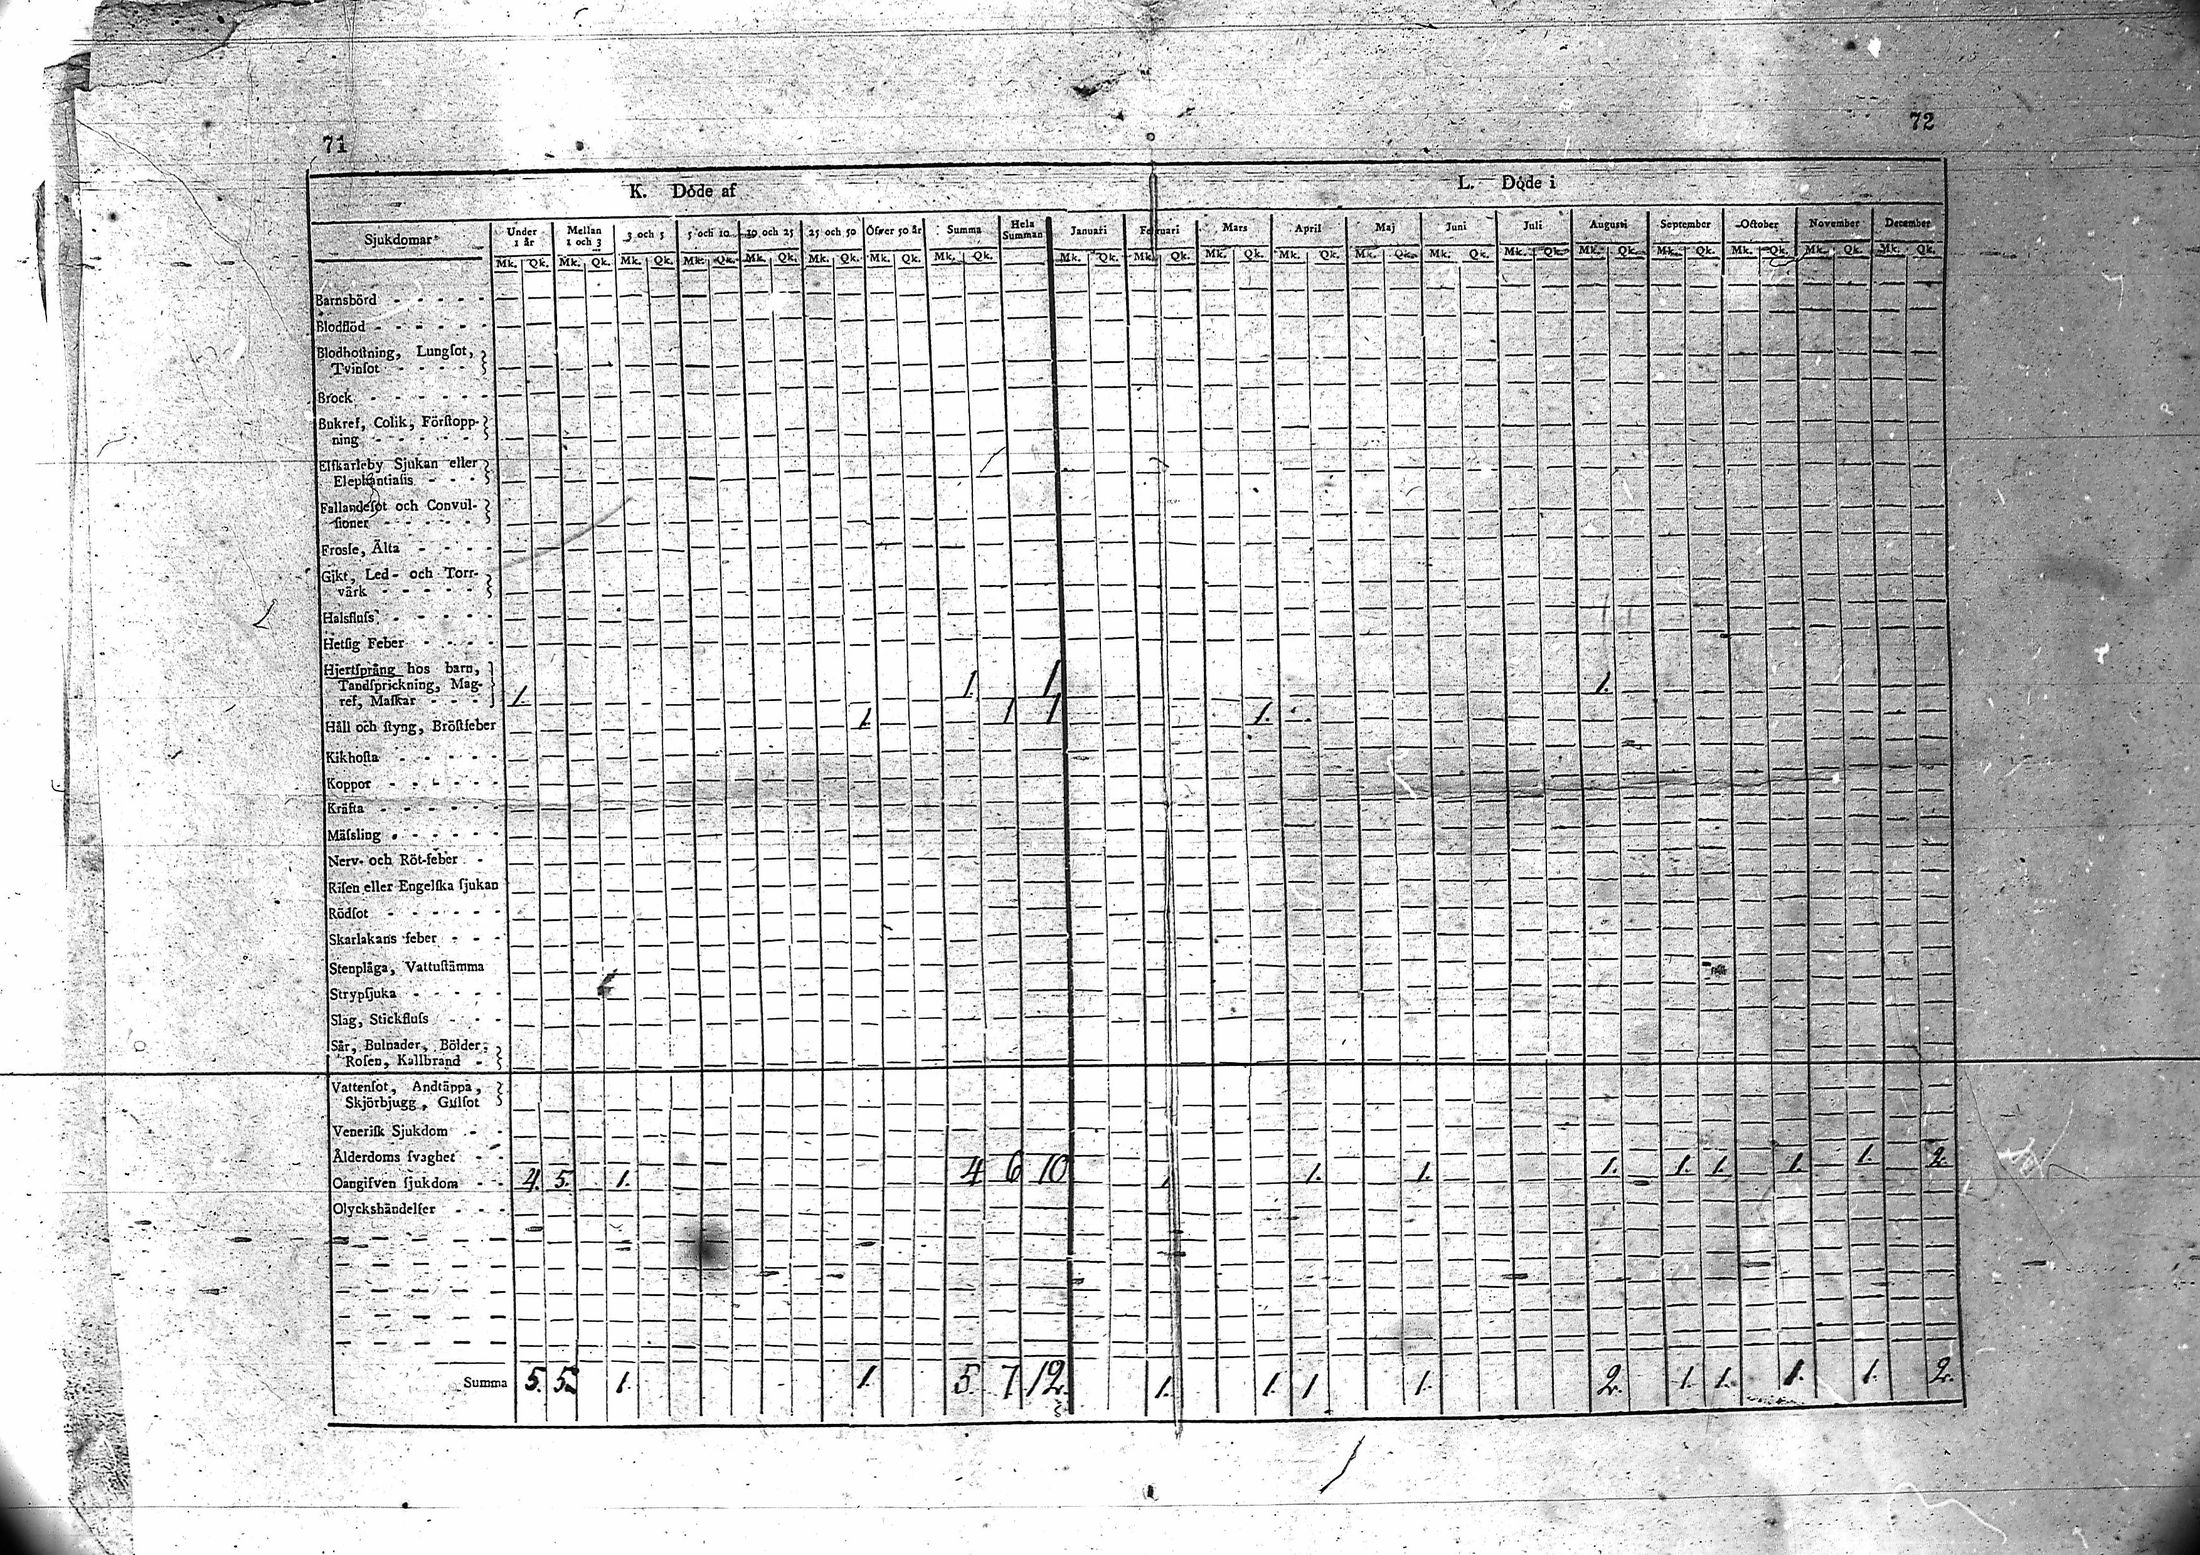 71
72
K. Döde af
L. Döde i
Sjukdomar
Under 1 år
Mellan 1 och 3
3 och 5
5 och 10
10 och 25
25 och 50
Öfver 50 år
Summa
Hela Summan
Januari
Februari
Mars
April
Maj
Juni
Juli
Augusti
September
October
November
December
Mk. Qk. Mk. Qk. Mk. Qk. Mk. Qk. Mk. Qk. Mk. Qk. Mk. Qk. Mk. Qk. Mk. Qk. Mk. Qk. Mk. Qk. Mk. Qk. Mk. Qk. Mk. Qk. Mk. Qk. Mk. Qk. Mk. Qk. Mk. Qk. Mk. Qk. Mk. Qk.
Barnsbörd
Blodflöd
Blodhoſtning, Lungſot,
Tvinſot
Brock
Bukref, Colik, Förſtopp-
ning
Elfkarleby Sjukan eller
Elephantiaſis
Fallandeſot och Convul-
ſioner
Froſſe, Älta
Gikt, Led- och Torr-
värk
Halsfluſs
Hetſig Feber
Hjertſprång hos barn,
Tandſprickning, Mag-
ref, Maſkar 1. 1. 1 1.
Håll och ſtyng, Bröſtfeber 1. 1 1 1.
Kikhoſta
Koppor
Kräfta
Mäſsling
Nerv- och Röt-feber
Riſen eller Engelſka ſjukan
Rödſot
Skarlakans feber
Stenplåga, Vattuſtämma
Strypſjuka
Slag, Stickfluſs
Sår, Bulnader, Bölder,
Roſen, Kallbrand
Vattenſot, Andtäppa,
Skjörbjugg, Gulſot
Veneriſk Sjukdom
Ålderdoms ſvaghet
Oangifven ſjukdom 4. 5. 1. 4 6 10 1 1. 1. 1. 1. 1. 1. 1. 2.
Olyckshändelſer
Summa 5. 5. 1. 1. 5. 7 12. 1. 1. 1 1. 2. 1. 1. 1. 1. 2.